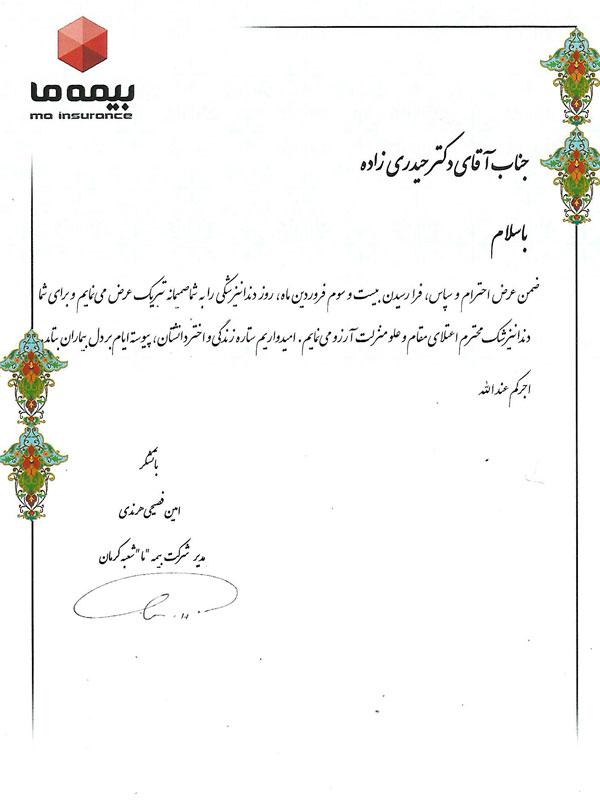 بیمه ما
ma insurance
جناب آقای دکتر حیدری زاده
باسلام
ضمن عرض احترام و سپاس، فرارسیدن بیست و سوم فروردین ماه، روز دندانپزشکی را به شما صمیمانه تبریک عرض می نمایم و برای شما
دندانپزشک محترم اعتلای مقام و علو منزلت آرزو می نمایم. امیدواریم ستاره زندگی و اختر دانشتان، پیوسته ایام بر دل بیماران بتابد.
اجرکم عندالله
باتشکر
امین فصیحی هرندی
مدیر شرکت بیمه "ما" شعبه کرمان